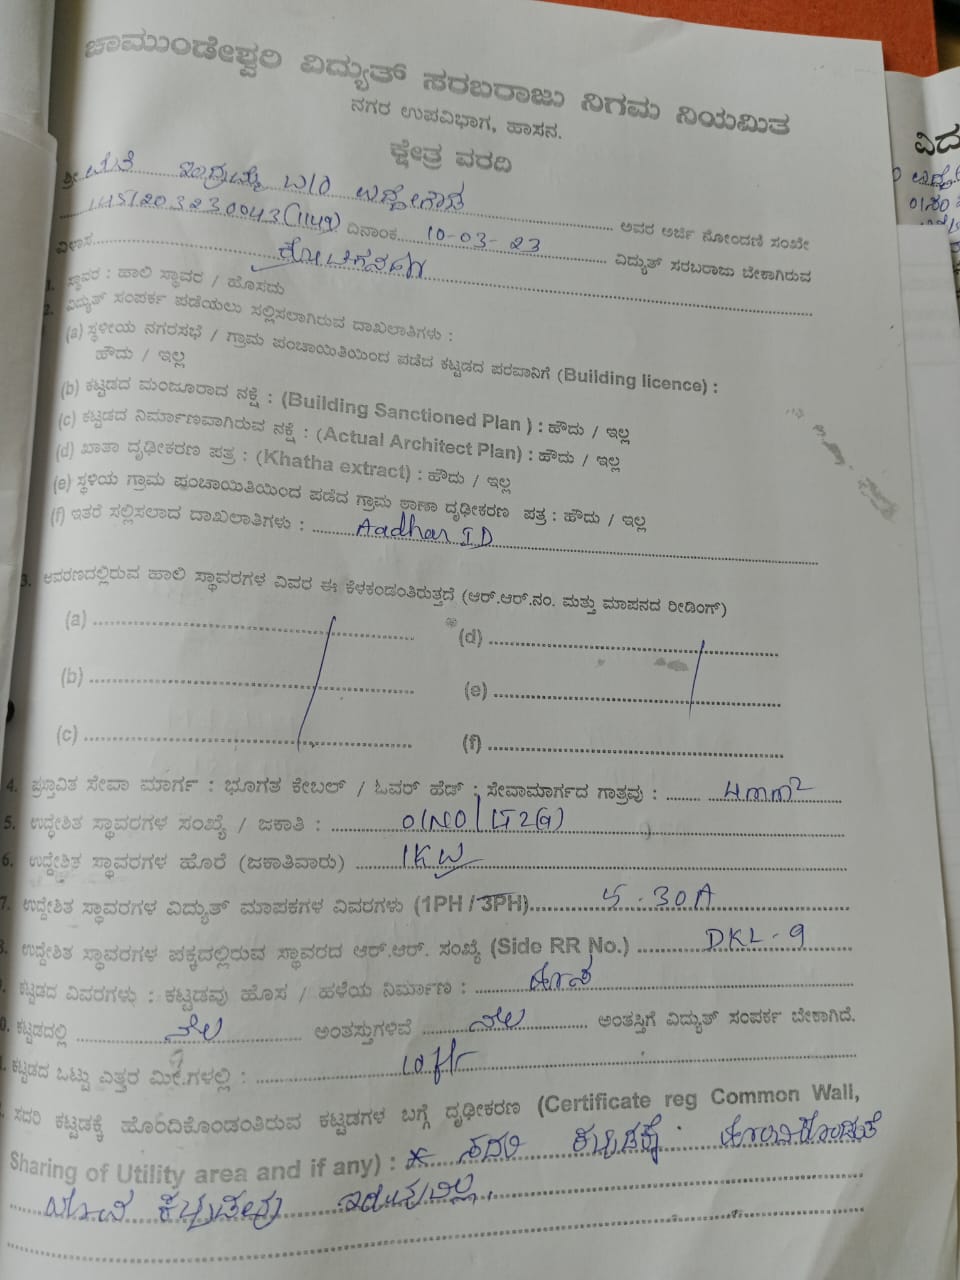 ಚಾಮುಂಡೇಶ್ವರಿ ವಿದ್ಯುತ್ ಸರಬರಾಜು ನಿಗಮ ನಿಯಮಿತ
ನಗರ ಉಪವಿಭಾಗ, ಹಾಸನ.
ಕ್ಷೇತ್ರ ವರದಿ
ಶ್ರೀ ಮತಿ ಇಂದ್ರಮ್ಮ W/O ಉದ್ದೇಗೌಡ ಅವರ ಅರ್ಜಿ ನೋಂದಣಿ ಸಂಖೇ
145/203230043(1149) ದಿನಾಂಕ 10-03-23 ವಿದ್ಯುತ್ ಸರಬರಾಜು ಬೇಕಾಗಿರುವ
ವಿಳಾಸ
1. ಸ್ಥಾವರ : ಹಾಲಿ ಸ್ಥಾವರ / ಹೊಸದು
2. ವಿದ್ಯುತ್ ಸಂಪರ್ಕ ಪಡೆಯಲು ಸಲ್ಲಿಸಲಾಗಿರುವ ದಾಖಲಾತಿಗಳು :
(a) ಸ್ಥಳೀಯ ನಗರಸಭೆ / ಗ್ರಾಮ ಪಂಚಾಯಿತಿಯಿಂದ ಪಡೆದ ಕಟ್ಟಡದ ಪರವಾನಿಗೆ (Building licence) :
ಹೌದು / ಇಲ್ಲ
(b) ಕಟ್ಟಡದ ಮಂಜೂರಾದ ನಕ್ಷೆ : (Building Sanctioned Plan ) : ಹೌದು / ಇಲ್ಲ
(c) ಕಟ್ಟಡದ ನಿರ್ಮಾಣವಾಗಿರುವ ನಕ್ಷೆ : (Actual Architect Plan) : ಹೌದು / ಇಲ್ಲ
(d) ಖಾತಾ ದೃಢೀಕರಣ ಪತ್ರ : (Khatha extract) : ಹೌದು / ಇಲ್ಲ
(e) ಸ್ಥಳಿಯ ಗ್ರಾಮ ಪಂಚಾಯಿತಿಯಿಂದ ಪಡೆದ ಗ್ರಾಮ ಠಾಣಾ ದೃಢೀಕರಣ ಪತ್ರ : ಹೌದು / ಇಲ್ಲ
(f) ಇತರೆ ಸಲ್ಲಿಸಲಾದ ದಾಖಲಾತಿಗಳು : Aadhar ID
3. ಆವರಣದಲ್ಲಿರುವ ಹಾಲಿ ಸ್ಥಾವರಗಳ ವಿವರ ಈ ಕೆಳಕಂಡಂತಿರುತ್ತದೆ (ಆರ್.ಆರ್.ನಂ. ಮತ್ತು ಮಾಪನದ ರೀಡಿಂಗ್)
(a) (d)
(b) (e)
(c) (f)
4. ಪ್ರಸ್ತಾವಿತ ಸೇವಾ ಮಾರ್ಗ : ಭೂಗತ ಕೇಬಲ್ / ಓವರ್ ಹೆಡ್ : ಸೇವಾಮಾರ್ಗದ ಗಾತ್ರವು : 4mm²
5. ಉದ್ಧೇಶಿತ ಸ್ಥಾವರಗಳ ಸಂಖ್ಯೆ / ಜಕಾತಿ : 01NO/LT2(a)
6. ಉದ್ದೇಶಿತ ಸ್ಥಾವರಗಳ ಹೊರೆ (ಜಕಾತಿವಾರು) 1KW
7. ಉದ್ದೇಶಿತ ಸ್ಥಾವರಗಳ ವಿದ್ಯುತ್ ಮಾಪಕಗಳ ವಿವರಗಳು (1PH / 3PH) 5-30A
ಉದ್ದೇಶಿತ ಸ್ಥಾವರಗಳ ಪಕ್ಕದಲ್ಲಿರುವ ಸ್ಥಾವರದ ಆರ್.ಆರ್. ಸಂಖ್ಯೆ (Side RR No.) DKL-9
ಕಟ್ಟಡದ ವಿವರಗಳು : ಕಟ್ಟಡವು ಹೊಸ / ಹಳೆಯ ನಿರ್ಮಾಣ : ಹೊಸ
ಕಟ್ಟಡದಲ್ಲಿ ನೆಲ ಅಂತಸ್ತುಗಳಿವೆ ನೆಲ ಅಂತಸ್ತಿಗೆ ವಿದ್ಯುತ್ ಸಂಪರ್ಕ ಬೇಕಾಗಿದೆ.
ಕಟ್ಟಡದ ಒಟ್ಟು ಎತ್ತರ ಮೀ.ಗಳಲ್ಲಿ : 10ft
ಸದರಿ ಕಟ್ಟಡಕ್ಕೆ ಹೊಂದಿಕೊಂಡಂತಿರುವ ಕಟ್ಟಡಗಳ ಬಗ್ಗೆ ದೃಢೀಕರಣ (Certificate reg Common Wall,
Sharing of Utility area and if any) : * ಸದರಿ ಕಟ್ಟಡಕ್ಕೆ ಹೊಂದಿಕೊಂಡಂತೆ
ಯಾವ ಕಟ್ಟಡವೂ ಇರುವುದಿಲ್ಲ.